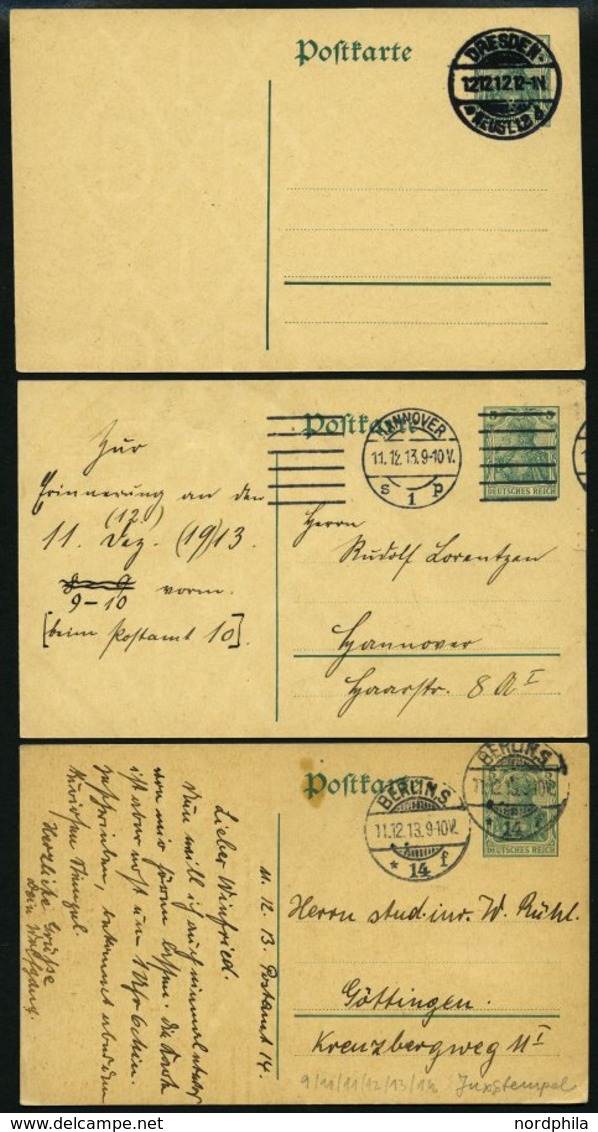 Postkarte
DRESDEN-
12.12.12.12-1N.
*NEUST.12d.
Postkarte
HANNOVER
11.12.13.9-10V.
s 1 p
DEUTSCHES REICH
Zur
Erinnerung an den
(12.)
11. Dez. (19)13.
9-10 vorm.
[beim Postamt 10].
Herrn
Rudolf Lorentzen
Hannover
Haarstr. 8 A I
Postkarte
BERLIN.S
11.12.13.9-10V.
* 14 f
BERLIN.S
11.12.13.9-10V.
* 14 f
DEUTSCHES REICH
11. 12. 13 Postamt 14.
Lieber Winfried.
Nun will ich auch einmal etwas
von mir hören lassen. Die Karte
ist aber erst um
geschrieben, bekommt aber den
kuriosen Stempel.
Herzliche Grüße
Dein Wolfgang.
Herrn stud. iur. W. Rühl.
Göttingen.
Kreuzbergweg 11 I
9/10/11/12/13/14 Juxstempel
www.delcampe.net
nordphila